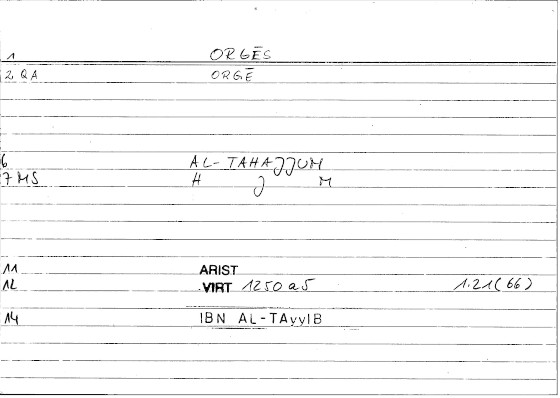 1 ORGĒS
2 QA ORGĒ
6 AL-TAHAJJUM
7 MS H J M
11 ARIST
12 .VIRT 1250 a5 1.21(66)
14 IBN AL-TAyyIB